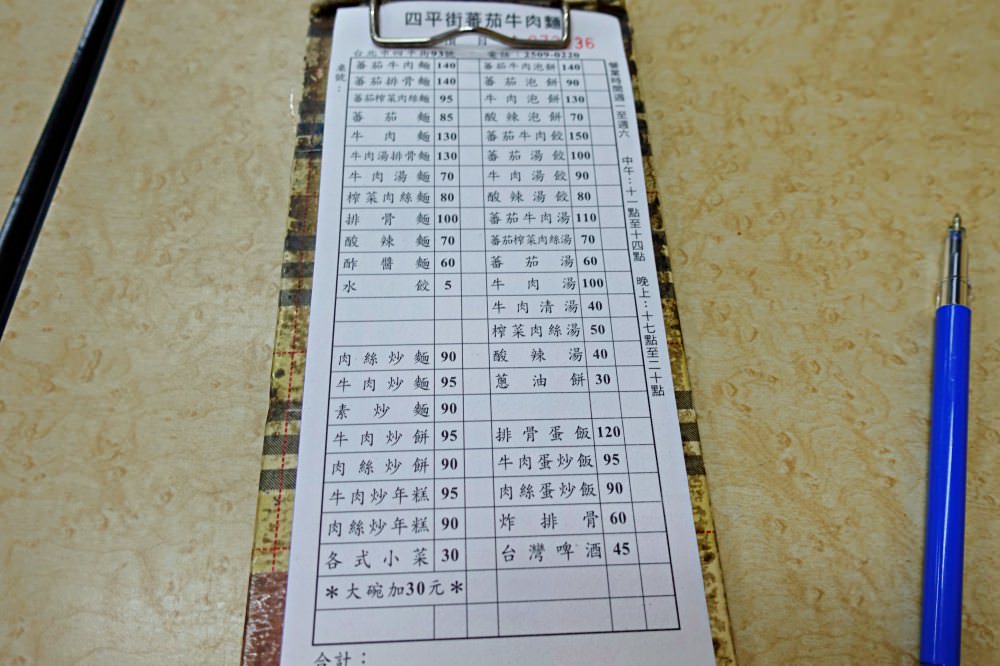 四平街蕃茄牛肉麵
36
台北市四平街93號 電話：2509-0220
桌號：
蕃茄牛肉麵 140 蕃茄牛肉泡餅 140
蕃茄排骨麵 140 蕃茄泡餅 90
蕃茄榨菜肉絲麵 95 牛肉泡餅 130
蕃茄麵 85 酸辣泡餅 70
牛肉麵 130 蕃茄牛肉餃 150
牛肉湯排骨麵 130 蕃茄湯餃 100
牛肉湯麵 70 牛肉湯餃 90
榨菜肉絲麵 80 酸辣湯餃 80
排骨麵 100 蕃茄牛肉湯 110
酸辣麵 70 蕃茄榨菜肉絲湯 70
酢醬麵 60 蕃茄湯 60
水餃 5 牛肉湯 100
牛肉清湯 40
榨菜肉絲湯 50
肉絲炒麵 90 酸辣湯 40
牛肉炒麵 95 蔥油餅 30
素炒麵 90
牛肉炒餅 95 排骨蛋飯 120
肉絲炒餅 90 牛肉蛋炒飯 95
牛肉炒年糕 95 肉絲蛋炒飯 90
肉絲炒年糕 90 炸排骨 60
各式小菜 30 台灣啤酒 45
＊大碗加30元＊
合計：
營業時間週一至週六 中午：十一點至十四點 晚上：十七點至二十點